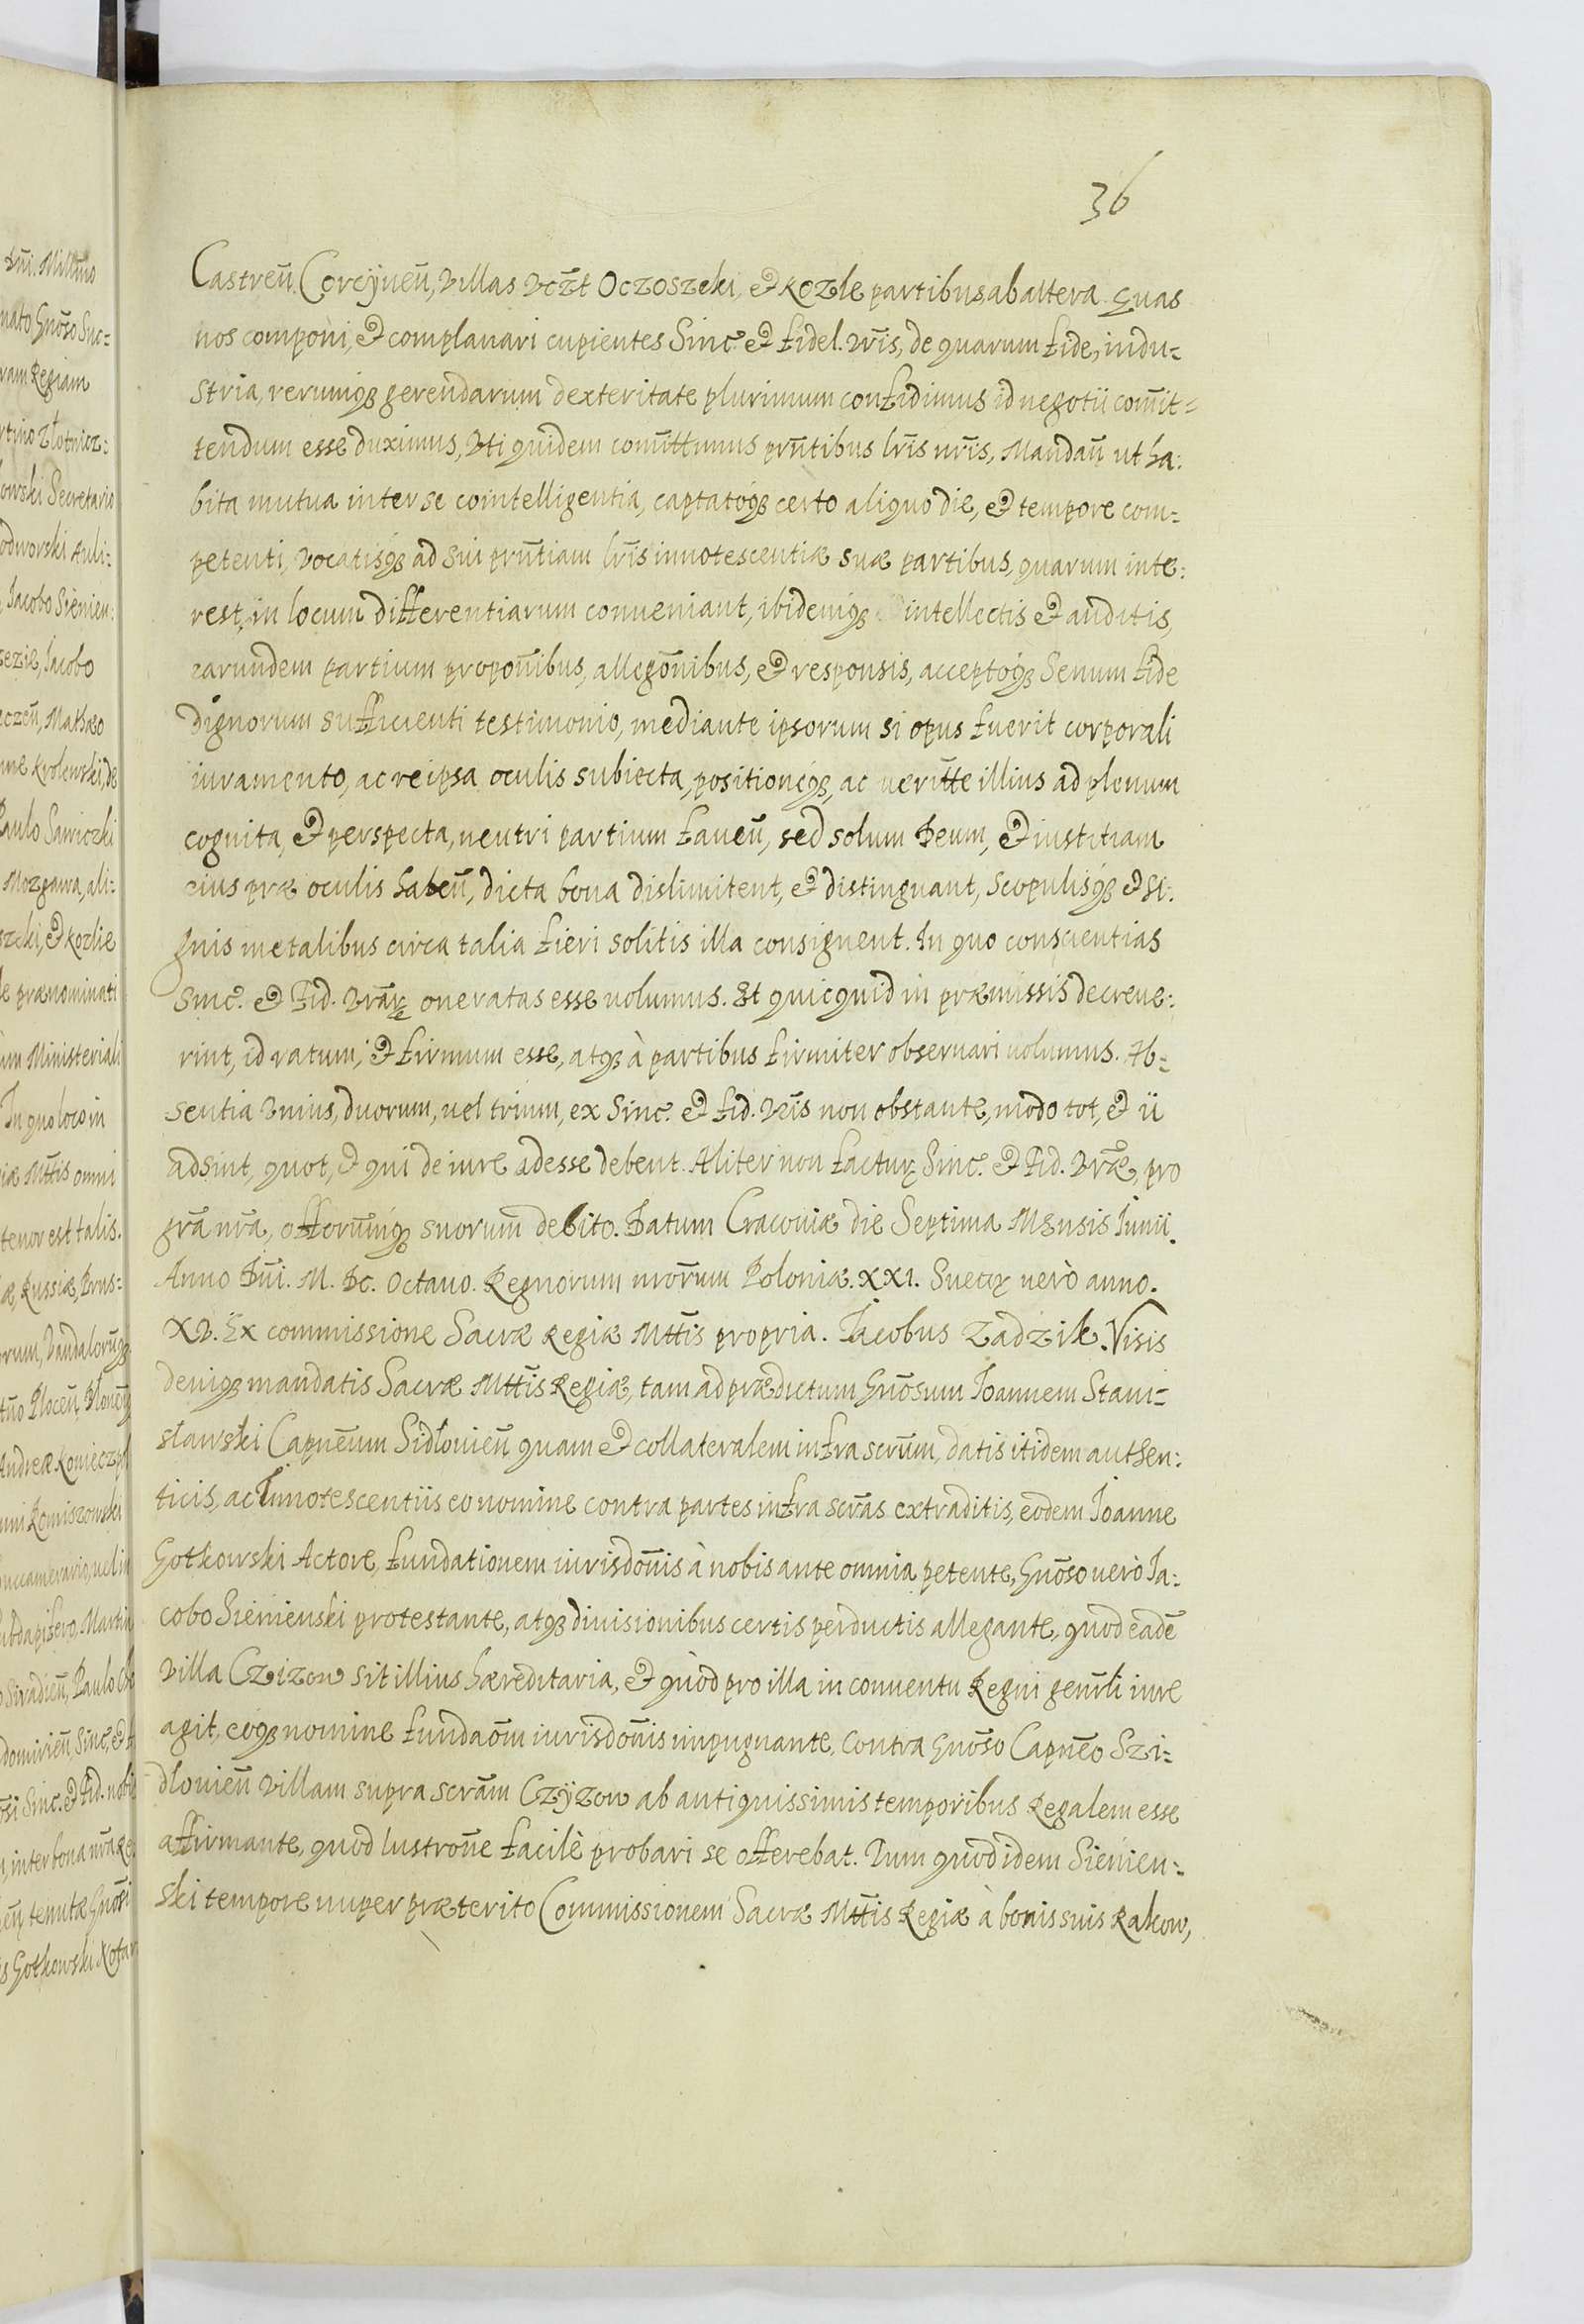 36
Castreñ. Corcÿneñ, Villas Vcz̃t Oczoszeki, et Kozle partibus ab altera. Quas
nos componi, et complanari cupientes Sinc. et fidel. Vr̃is, de quarum fide, indu-
stria, rerumq₃ gerendarum dexteritate plurimum confidimus id negotii com̃it-
tendum esse duximus, Vti quidem com̃ittimus pñtibus lr̃is nr̃is, Mandañ ut ha:
bita mutua inter se cointelligentia, captatoq₃ certo aliquo die, et tempore com-
petenti, vocatisq₃ ad sui pñtiam lr̃is innotescentiæ suæ partibus, quarum inte:
rest, in locum differentiarum conueniant, ibidemq₃ intellectis et auditis,
earundem partium propoñibus, allegõnibus, et responsis, acceptoq₃ Senum fide
dignorum sufficienti testimonio, mediante ipsorum si opus fuerit corporali
iuramento, ac re ipsa oculis subiecta, positioneq₃, ac verit̃te illius ad plenum
cognita, et perspecta, neutri partium faueñ, sed solum Deum, et iustitiam
eius præ oculis habeñ, dicta bona dislimitent, et distinguant, scopulisq₃ et si:
gnis metalibus circa talia fieri solitis illa consignent. In quo conscientias
Sinc. et Fid. Vrãr oneratas esse uolumus. Et quicquid in præmissis decreue:
rint, id ratum, et firmum esse, atq₃ à partibus firmiter obseruari uolumus. Ab-
sentia Vnius, duorum, uel trium, ex Sinc. et fid. Vr̃is non obstante, modo tot, et ii
adsint, quot, et qui de iure adesse debent. Aliter non facturę Sinc. et Fid. Vr̃æ, pro
gr̃a nr̃a, offorum̃q₃ suorum debito. Datum Cracouiæ die Septima Mensis Iunii.
Anno Dñi. M. DC. Octauo. Regnorum nr̃orum Poloniæ. XXI. Suecię uerò anno.
XV. Ex commissione Sacræ Regiæ Mtt̃is propria. Iacobus Zadzik. Visis
deniq₃ mandatis Sacræ Mtt̃is Regiæ, tam ad prædictum Gnõsum Ioannem Stani-
sławski Capñeum Sidłouieñ quam et collateralem infra scr̃um, datis itidem authen:
ticis, ac Innotescentiis eo nomine contra partes infra scr̃as extraditis, eodem Ioanne
Gotkowski Actore, fundationem iurisdoñis à nobis ante omnia petente, Gnõso uerò Ia:
cobo Sienienski protestante, atq₃ diuisionibus certis perductis allegante, quod eadẽ
Villa Czizow sit illius hæreditaria, et quòd pro illa in conuentu Regni genr̃li iure
agit, eoq₃ nomine fundaõm iurisdoñis impugnante, contra Gnõso Capñeo Szi-
dłouieñ Villam supra scr̃am Czÿzow ab antiquissimis temporibus Regalem esse
affirmante, quod lustroñe facilè probari se offerebat. Tum quod idem Sienien-
ski tempore nuper præterito Commissionem Sacræ Mtt̃is Regiæ à bonis suis Rakow,